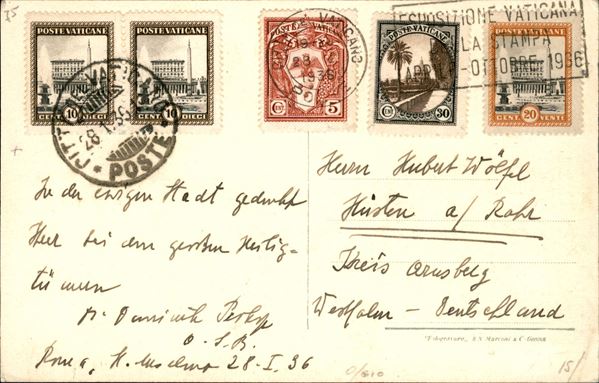 75
POSTE VATICANE
POSTE VATICANE
10
CENT. DIECI
10
CENT. DIECI
POSTE VATICANE
CENT 5
CENT 30
POSTE VATICANE
20
CENT. VENTI
CITTÀ DEL VATICANO
28.1.36
POSTE
VATICANO
28
1936
ESPOSIZIONE VATICANA
LA STAMPA
-OTTOBRE 1936
In der ewigen Stadt gedenkt
Ihrer bei den großen Heilig-
tümern
O. S. B.
Roma, S. Anselmo 28-I. 36
Herrn Hubert Wölfl
Hüsten a/ Ruhr
Kreis Arnsberg
Westfalen - Deutschland
"Fotogravure" S.A. Marconi & C. Genova
15/